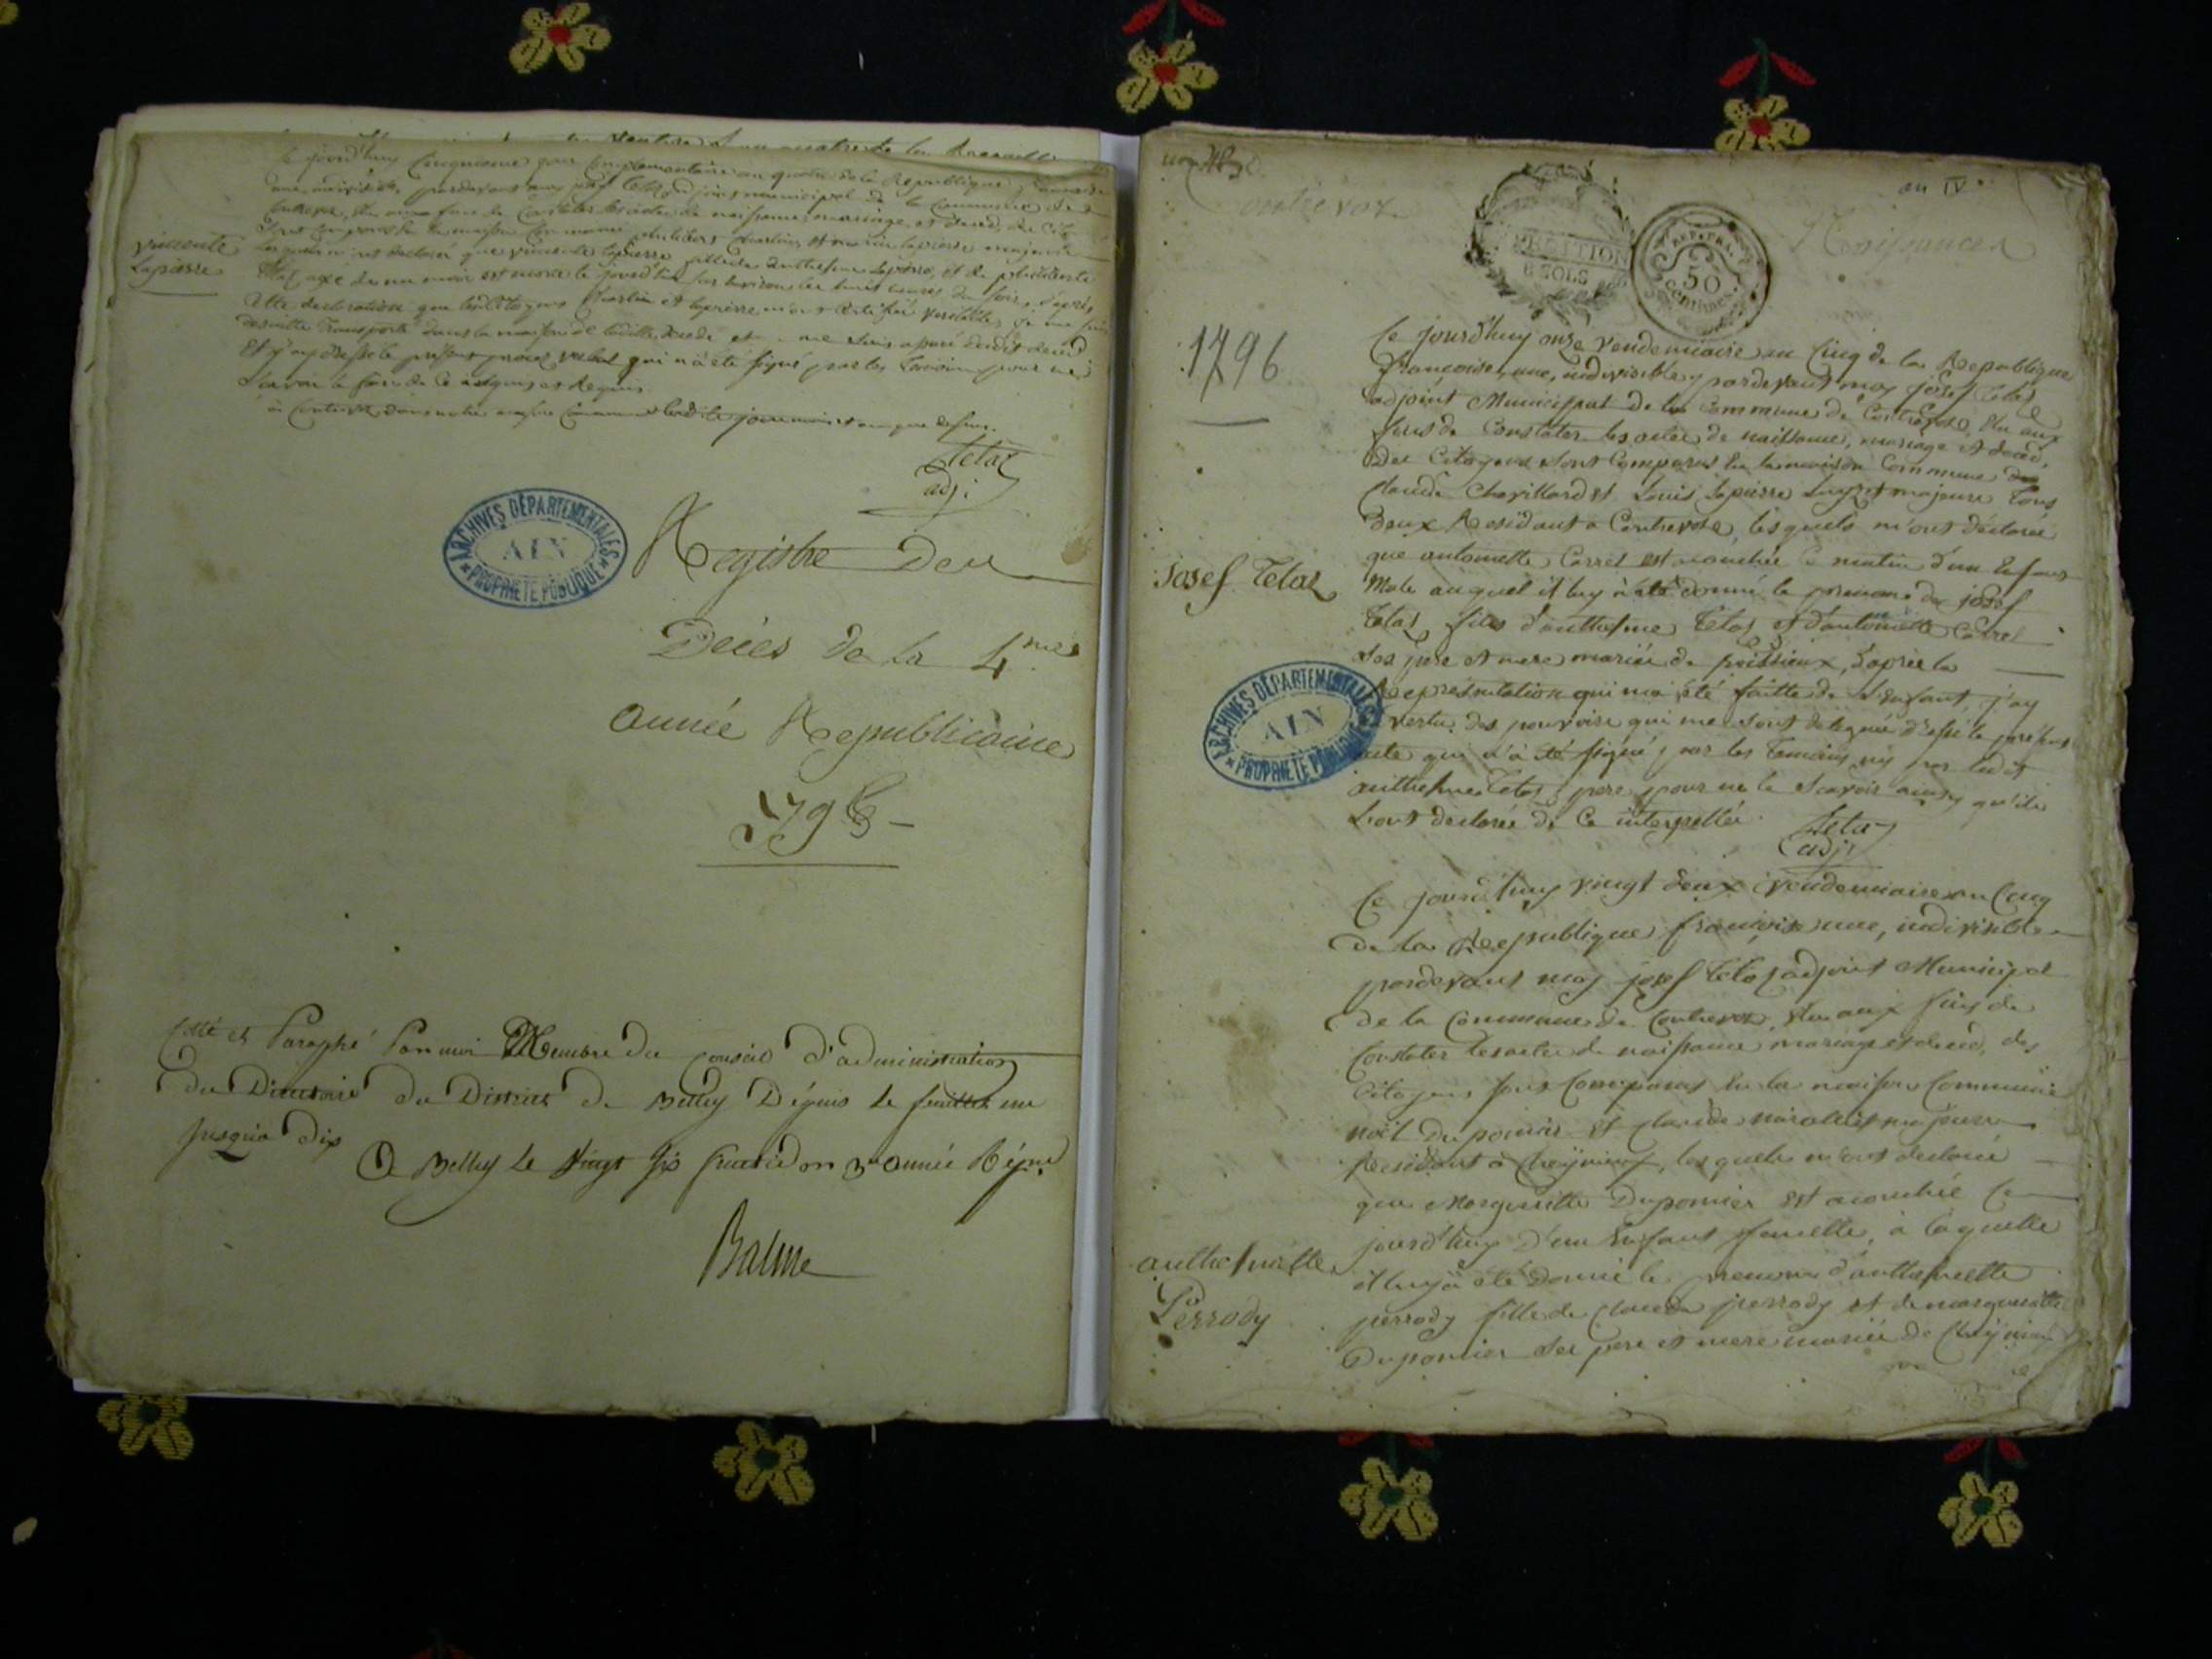 Ce jourd'huy cinquieme jour complementaire an quatre de la Republique francoise
une, indivisible, pardevant moy josef Tetaz adjoint municipal de la Commune de
Contrevoz, élu aux fins de Constater les actes de naissance, mariage et deces, des Cito
vincente
Lapierre
lesquels m'ont declaré que vincente lapierre fille de Anthelme Lapierre, et de
Tetaz agée de un mois est morte le jourd'huy sur les huit heures du soir, d'après
cette declaration que lesd citoyens Martin et lapierre m'ont certifié veritable, je me suis
desuitte Transporté dans la maison de laditte decedé et me suis assuré dudit deces
Et j'ay dressé le present procès verbal qui n'a été signé par les Temoins pour ne
scavoir le faire de ce enquis et Requis
à Contrevoz dans notre maison Commune lesdits jour mois et an que dessus.
Tetaz
adj:
ARCHIVES DÉPARTEMENTALES
AIN
PROPRIÉTÉ PUBLIQUE
Registre Des
Décés de la 4me
année Republicaine
1796
Cotté et Paraphé Par moi Membre du conseil d'administration
du Directoire du District de Belley Dépuis le feuillet un
jusqu'a dix
A Belley le vingt six fructidor 3e année Répne
Balme
contrevoz
an IV
Naissances
8 SOLS
REP. FRA.
50
centimes
1796
Ce jourd'huy onze vendemiaire an Cinq de la Republique
francoise, une, indivisible, pardevant moy josef Tetaz
adjoint Municipal de la Commune de Contrevoz, élu aux
fins de Constater les actes de naissance, mariage et deces,
des Citoyens sont Comparus En la maison Commune
Claude Chavillard et Louis Lapierre majeurs Tous
deux Residant a Contrevoz, lesquels m'ont declaré
que antoinette Carrel est acouchée Ce matin d'un Enfant
Josef Tetaz
Male auquel il luy à été donné le prenom de josef
Tetaz fils d'anthelme Tetaz et d'antoinette Carrel
ses pere et mere mariée de poissieux, d'après la
Representation qui m'a été faitte de L'enfant, j'ay
en vertu des pouvoirs qui me sont delegués dressé le present
acte qui n'a été signé par les Temoins ny par ledit
anthelme Tetaz pere pour ne le Scavoir ainsy qu'ils
L'ont declarée de Ce interpellée.
Tetaz
adj:
ARCHIVES DÉPARTEMENTALES
AIN
PROPRIÉTÉ PUBLIQUE
Ce jourd'huy vingt deux vendemiaire an Cinq
de la Republique francoise une, indivisible
pardevant moy josef Tetaz adjoint Municipal
de la Commune de Contrevoz, élu aux fins de
Constater les actes de naissance mariage et deces, des
Citoyens sont Comparus En la maison Commune
noël Dupomier et Claude majeurs
Residant à Cheynieux, lesquels m'ont declaré
que Margueritte Dupomier est acouchée Ce
jourd'huy d'un Enfant femelle, à laquelle
anthelmette
Perrody
il luy à été donné le prenom d'anthelmette
perrody fille de Claude perrody et de marguerite
Dupomier ses pere et mere mariée de Cheynieux